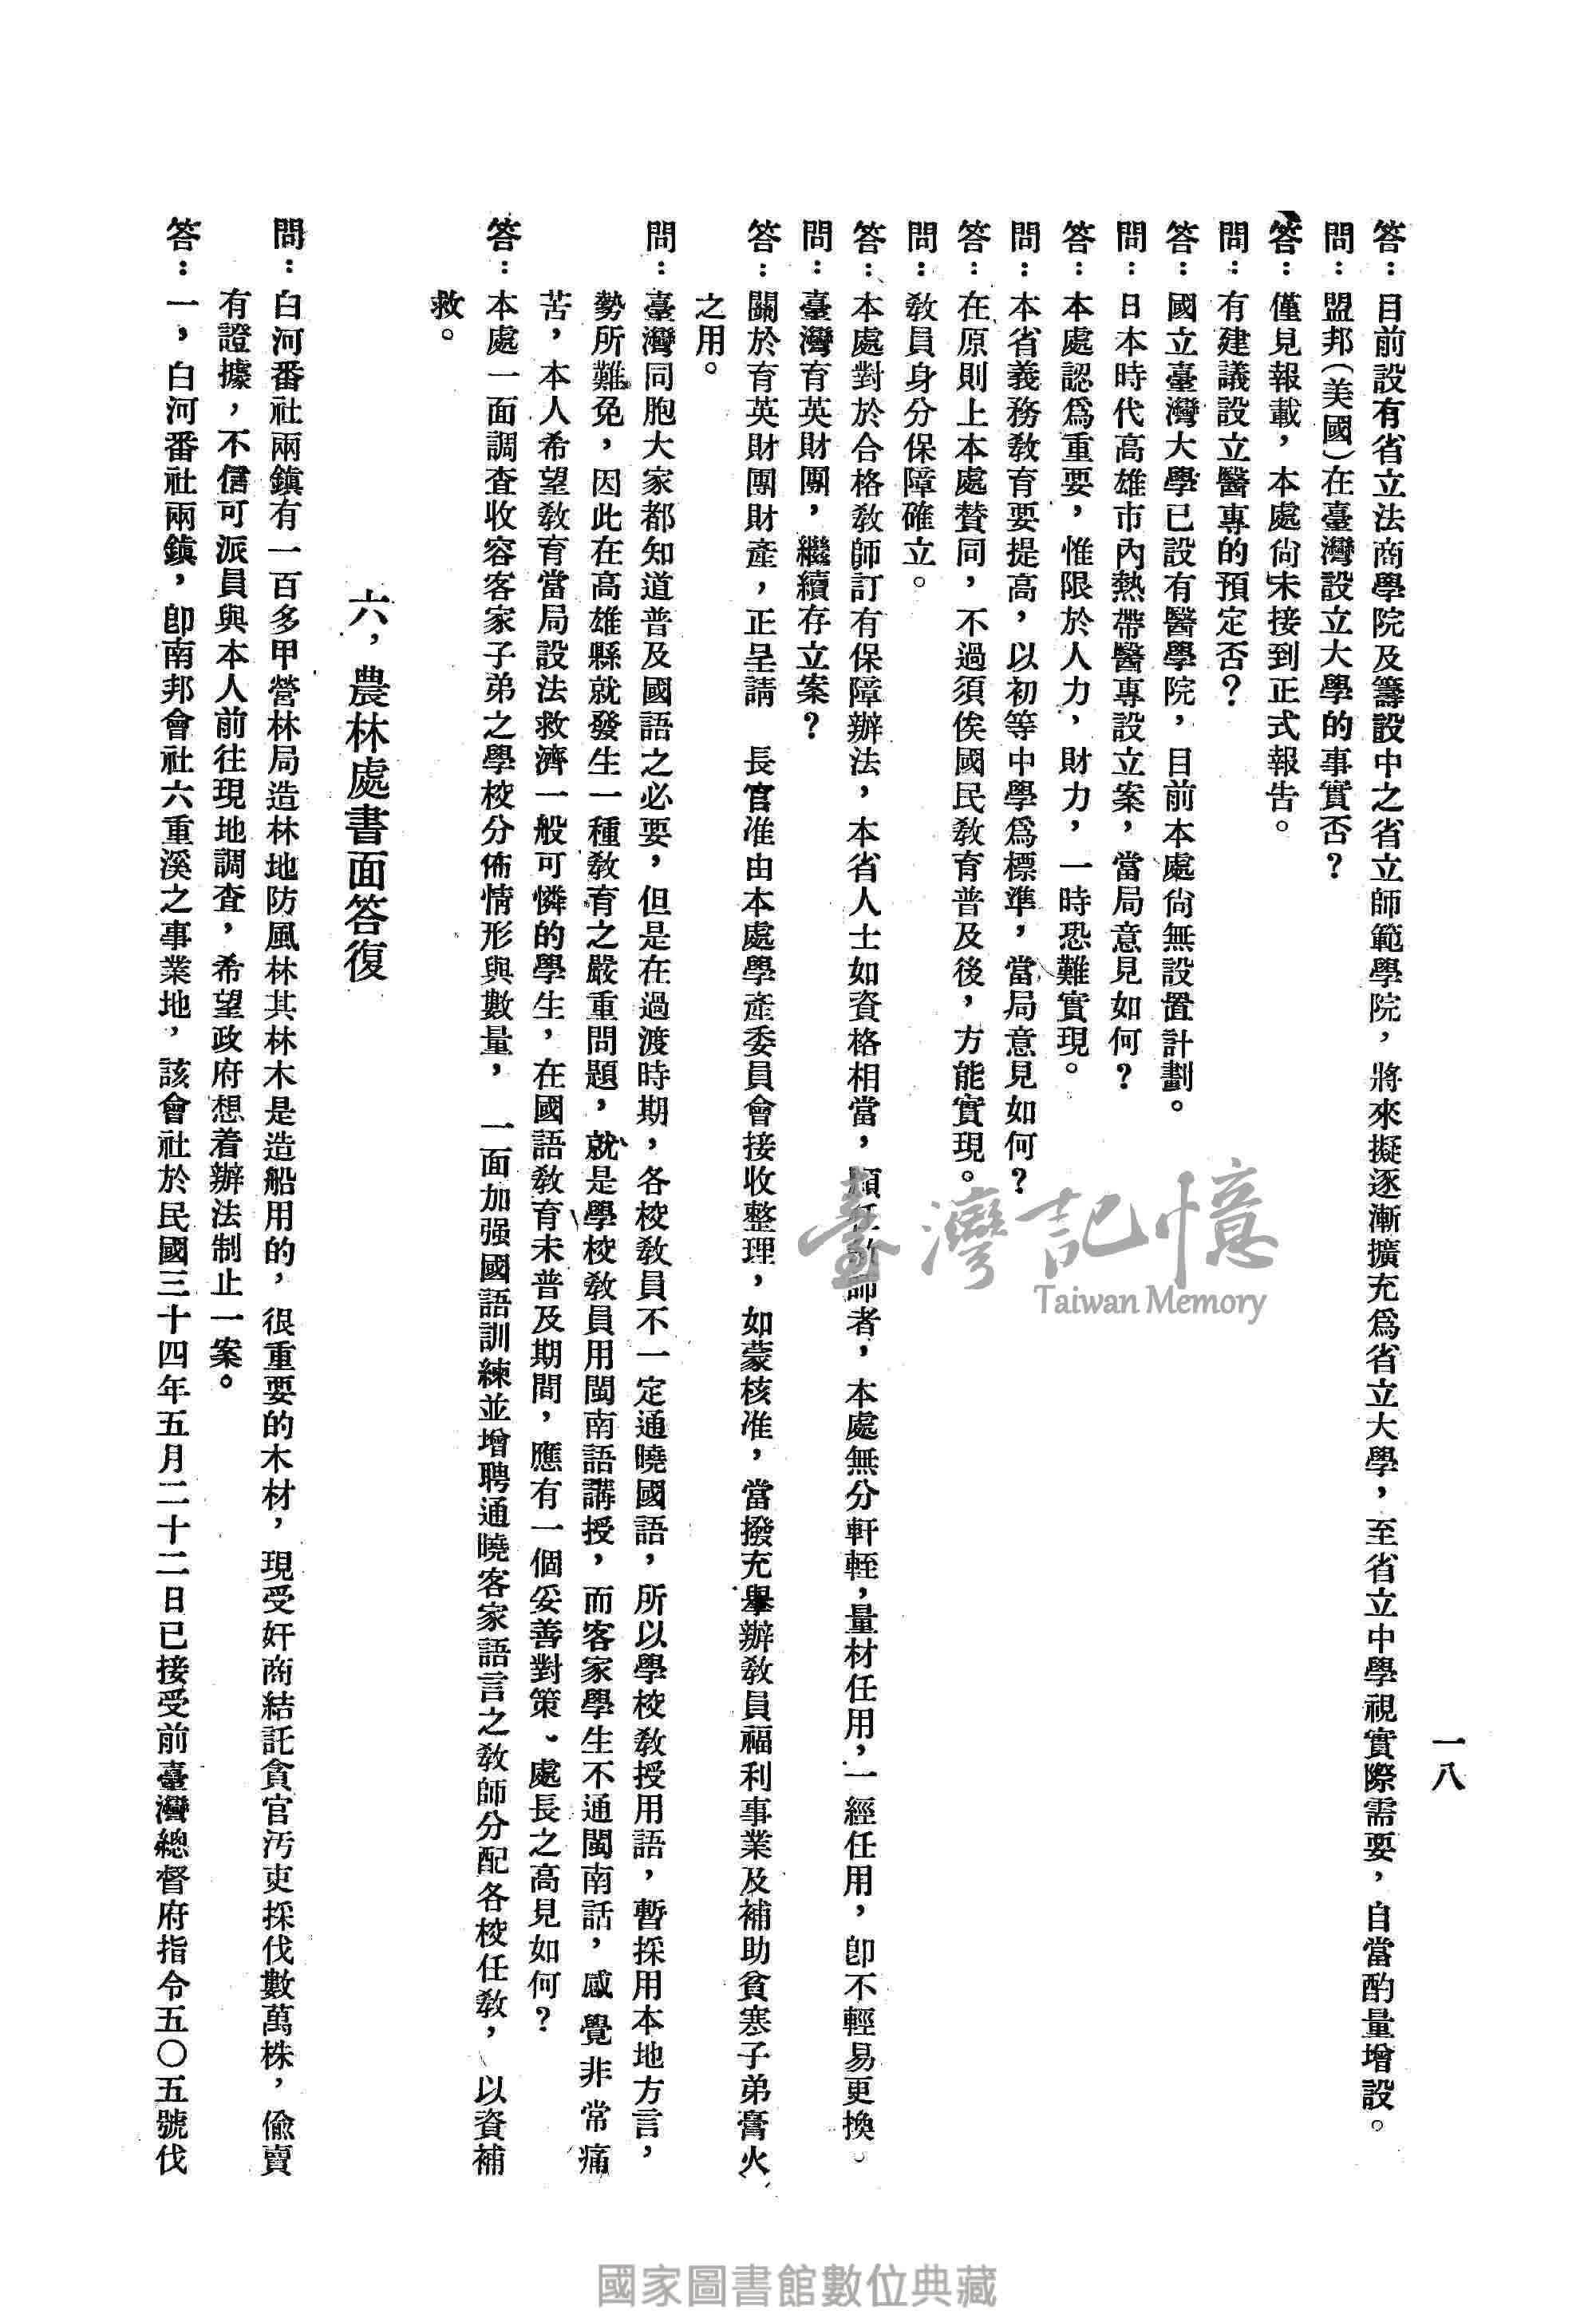 一八
答：目前設有省立法商學院及籌設中之省立師範學院，將來擬逐漸擴充爲省立大學，至省立中學視實際需要，自當酌量增設。
問：盟邦（美國）在臺灣設立大學的事實否？
答：僅見報載，本處尙未接到正式報告。
問：有建議設立醫專的預定否？
答：國立臺灣大學已設有醫學院，目前本處尙無設置計劃。
問：日本時代高雄市內熱帶醫專設立案，當局意見如何？
答：本處認爲重要，惟限於人力，財力，一時恐難實現。
問：本省義務敎育要提高，以初等中學爲標準，當局意見如何？
答：在原則上本處贊同，不過須俟國民敎育普及後，方能實現。
問：敎員身分保障確立。
答：本處對於合格敎師訂有保障辦法，本省人士如資格相當，願任敎師者，本處無分軒輊，量材任用，一經任用，卽不輕易更換。
問：臺灣育英財團，繼續存立案？
答：關於育英財團財產，正呈請　長官准由本處學產委員會接收整理，如蒙核准，當撥充舉辦敎員福利事業及補助貧寒子弟膏火
之用。
問：臺灣同胞大家都知道普及國語之必要，但是在過渡時期，各校敎員不一定通曉國語，所以學校敎授用語，暫採用本地方言，
勢所難免，因此在高雄縣就發生一種敎育之嚴重問題，就是學校敎員用閩南語講授，而客家學生不通閩南話，感覺非常痛
苦，本人希望敎育當局設法救濟一般可憐的學生，在國語敎育未普及期間，應有一個妥善對策、處長之高見如何？
答：本處一面調查收容客家子弟之學校分佈情形與數量，一面加强國語訓練並增聘通曉客家語言之敎師分配各校任敎，以資補
救。
六，農林處書面答復
問：白河番社兩鎭有一百多甲營林局造林地防風林其林木是造船用的，很重要的木材，現受奸商結託貪官汚吏採伐數萬株，偸賣
有證據，不信可派員與本人前往現地調查，希望政府想着辦法制止一案。
答：一，白河番社兩鎭，卽南邦會社六重溪之事業地，該會社於民國三十四年五月二十二日已接受前臺灣總督府指令五〇五號伐
臺灣記憶
Taiwan Memory
國家圖書館數位典藏